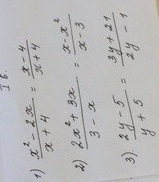 I в.
1) \frac{x^2 - 2x}{x + 4} = \frac{x - 4}{x + 4}
2) \frac{2x^2 + 3x}{3 - x} = \frac{x - x^2}{x - 3}
3) \frac{2y - 5}{y + 5} = \frac{3y + 21}{2y - 1}